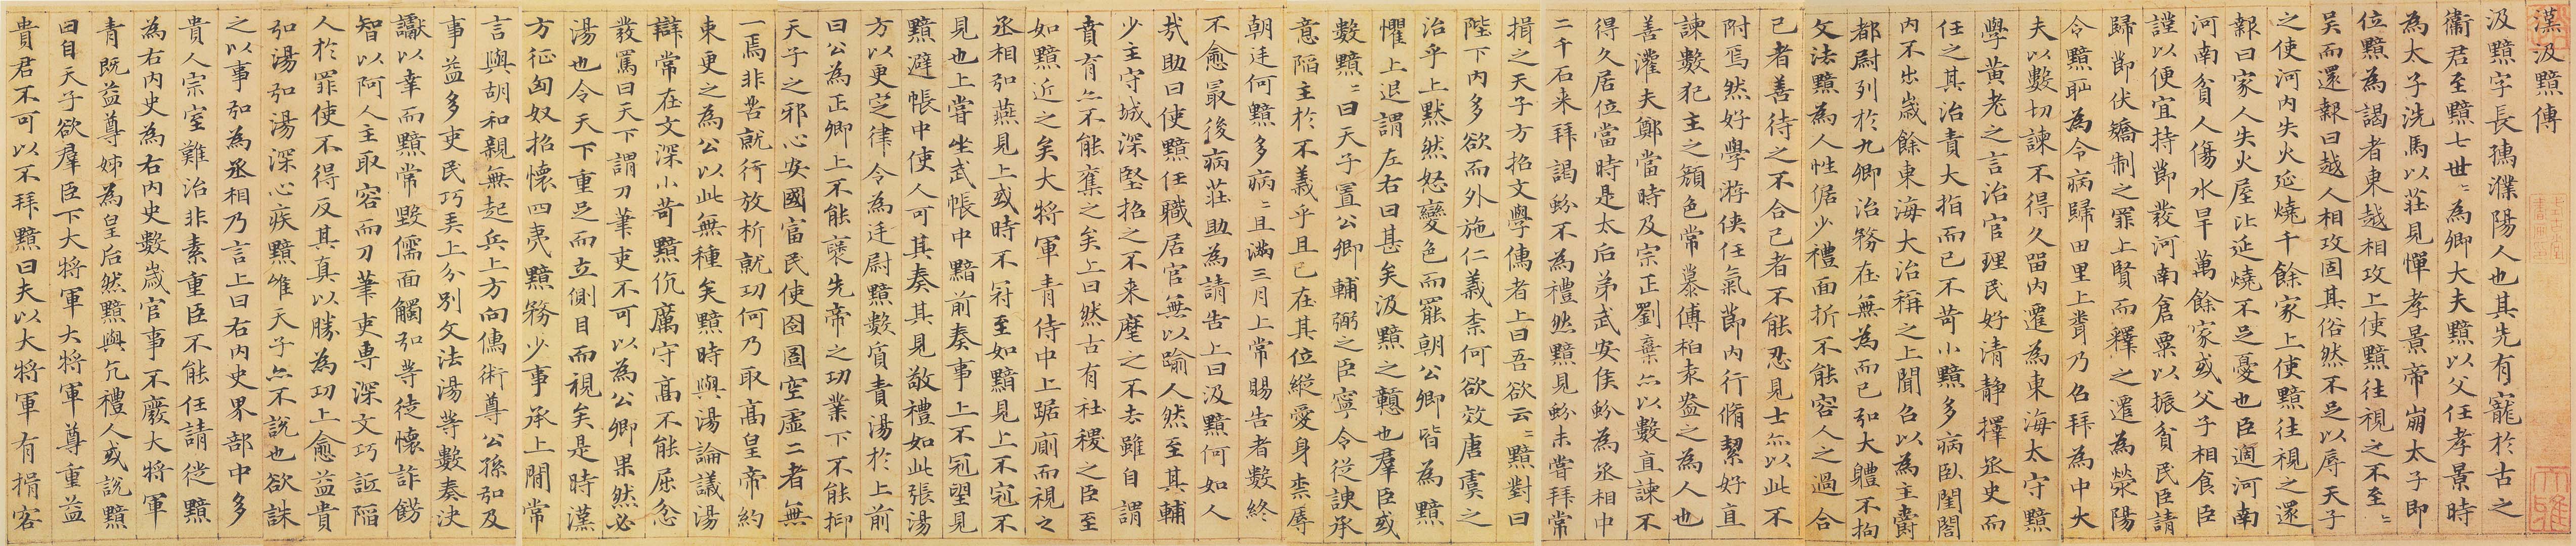 漢汲黯傳
汲黯字長孺濮陽人也其先有寵於古之
衛君至黯七世〻為卿大夫黯以父任孝景時
為太子洗馬以莊見憚孝景帝崩太子即
位黯為謁者東越相攻上使黯往視之不至〻
吴而還報曰越人相攻固其俗然不足以辱天子
之使河内失火延燒千餘家上使黯往視之還
報曰家人失火屋比延燒不足憂也臣適河南
河南貧人傷水旱萬餘家或父子相食臣
謹以便宜持節發河南倉粟以振貧民臣請
歸節伏矯制之罪上賢而釋之遷為滎陽
令黯恥為令病歸田里上聞乃召拜為中大
夫以數切諫不得久留内遷為東海太守黯
學黄老之言治官理民好清静擇丞史而
任之其治責大指而已不苛小黯多病臥閨閤
内不出歲餘東海大治稱之上聞召以為主爵
都尉列於九卿治務在無為而已弘大體不拘
文法黯為人性倨少禮面折不能容人之過合
己者善待之不合己者不能忍見士亦以此不
附焉然好學游俠任氣節内行脩絜好直
諫數犯主之顔色常慕傅柏袁盎之為人也
善灌夫鄭當時及宗正劉棄亦以數直諫不
得久居位當時是太后弟武安侯蚡為丞相中
二千石来拜謁蚡不為禮然黯見蚡未嘗拜常
揖之天子方招文學儒者上曰吾欲云〻黯對曰
陛下内多欲而外施仁義柰何欲效唐虞之
治乎上黙然怒變色而罷朝公卿皆為黯
懼上退謂左右曰甚矣汲黯之戇也羣臣或
數黯〻曰天子置公卿輔弼之臣寧令從諛承
意陷主於不義乎且已在其位縱愛身柰辱
朝廷何黯多病〻且滿三月上常賜告者數終
不愈最後病莊助為請告上曰汲黯何如人
㢤助曰使黯任職居官無以踰人然至其輔
少主守城深堅招之不来麾之不去雖自謂
賁育亦不能奪之矣上曰然古有社稷之臣至
如黯近之矣大将軍青侍中上踞廁而視之
丞相弘燕見上或時不冠至如黯見上不冠不
見也上嘗坐武帳中黯前奏事上不冠望見
黯避帳中使人可其奏其見敬禮如此張湯
方以更定律令為廷尉黯數質責湯於上前
曰公為正卿上不能襃先帝之功業下不能抑
天子之邪心安國富民使囹圄空虛二者無
一焉非苦就行放析就功何乃取高皇帝約
束更之為公以此無種矣黯時與湯論議湯
辯常在文深小苛黯伉厲守高不能屈忿
發罵曰天下謂刀筆吏不可以為公卿果然必
湯也令天下重足而立側目而視矣是時漢
方征匈奴招懷四夷黯務少事承上閒常
言與胡和親無起兵上方向儒術尊公孫弘及
事益多吏民巧弄上分别文法湯等數奏决
讞以幸而黯常毀儒面觸弘等徒懷詐飾
智以阿人主取容而刀筆吏專深文巧詆陷
人於罪使不得反其真以勝為功上愈益貴
弘湯弘湯深心疾黯雖天子亦不說也欲誅
之以事弘為丞相乃言上曰右内史界部中多
貴人宗室難治非素重臣不能任請徙黯
為右内史為右内史數歲官事不廢大将軍
青既益尊姊為皇后然黯與亢禮人或說黯
曰自天子欲羣臣下大将軍大将軍尊重益
貴君不可以不拜黯曰夫以大将軍有揖客